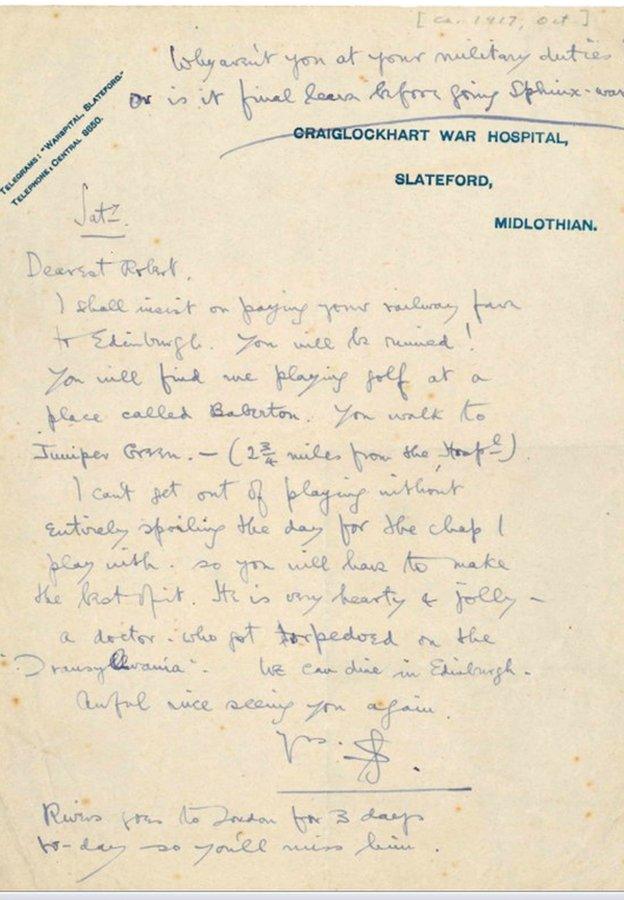 [ca. 1917, Oct.]
Why aren't you at your military duties
or is it final leave before going Sphinx-war
TELEGRAMS: "WARSPITAL, SLATEFORD."
TELEPHONE: CENTRAL 8650.
CRAIGLOCKHART WAR HOSPITAL,
SLATEFORD,
MIDLOTHIAN.
Saty.
Dearest Robert,
I shall insist on paying your railway fare
to Edinburgh. You will be ruined!
You will find me playing golf at a
place called Baberton. You walk to
Juniper Green. — (2 3/4 miles from the Hospl)
I can't get out of playing without
entirely spoiling the day for the chap I
play with. so you will have to make
the best of it. He is very hearty & jolly —
a doctor. who got torpedoed on the
"Transylvania". We can dine in Edinburgh.
Awful nice seeing you again.
Yrs. SS.
Rivers goes to London for 3 days
to-day so you'll miss him.